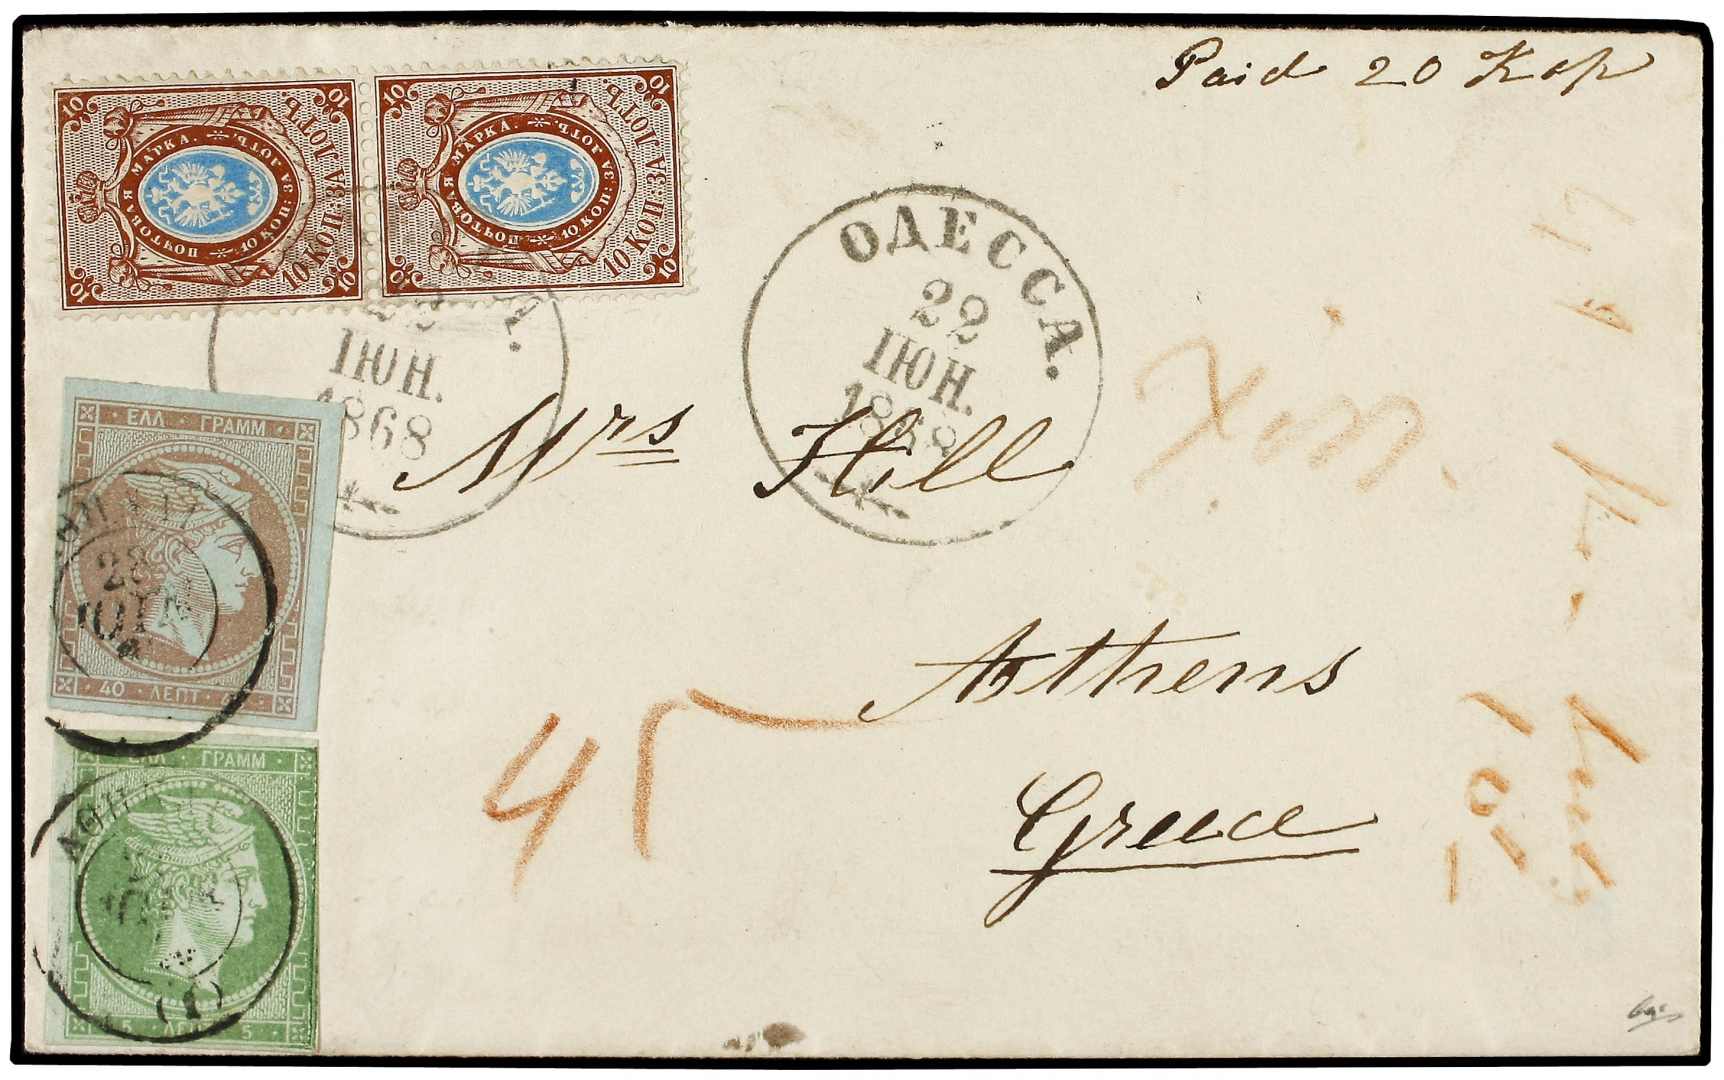 Paid 20 Kop
10 10
ПОЧТОВАЯ МАРКА.
10 КОП: ЗА ЛОТЪ
10 КОП: ЗА ЛОТЪ.
10 10
10 10
ПОЧТОВАЯ МАРКА.
10 КОП: ЗА ЛОТЪ
10 КОП: ЗА ЛОТЪ.
10 10
ОДЕССА.
22
ІЮН.
1868
22
ІЮН.
1868
Mrs Hill
Athens
Greece
45
ΕΛΛ · ΓΡΑΜΜ
28
ΙΟΥΝ
40 · ΛΕΠΤ
ΕΛΛ · ΓΡΑΜΜ
ΑΘΗΝΑΙ
(1)
5 ΛΕΠΤ 5